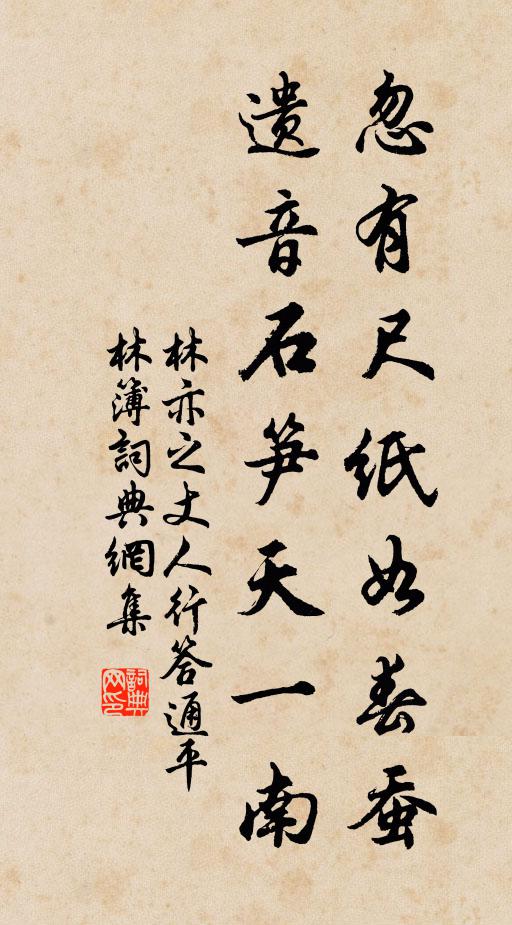 忽有尺紙如春蚕
遺音石笋天一南
林亦之丈人行答通平
林簿詞典網集
詞典网印